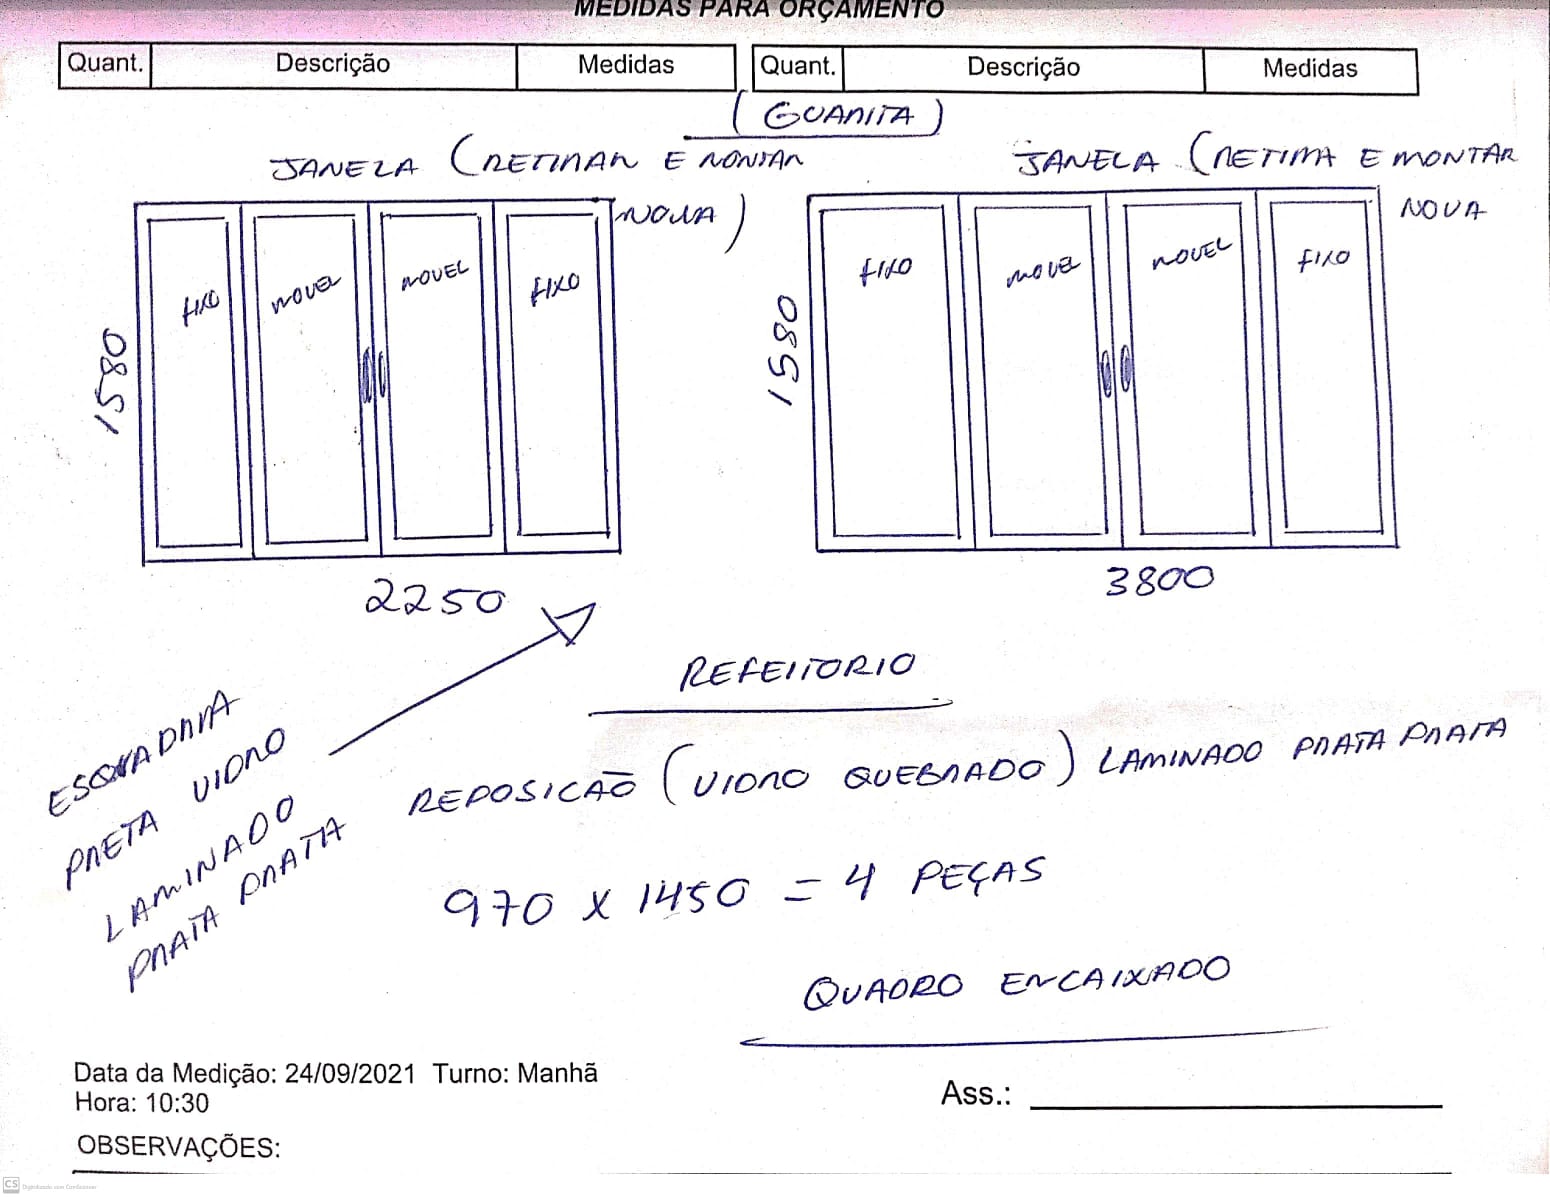 MEDIDAS PARA ORÇAMENTO
Quant. Descrição Medidas Quant. Descrição Medidas
(GUARITA)
JANELA (RETIRAR E MONTAR
NOVA)
JANELA (RETIRA E MONTAR
NOVA
FIXO MOVEL MOVEL FIXO
1580
2250
FIXO MOVEL MOVEL FIXO
1580
3800
ESQUADRIA
PRETA VIDRO
LAMINADO
PRATA PRATA
REFEITORIO
REPOSICÃO (VIDRO QUEBRADO) LAMINADO PRATA PRATA
970 X 1450 = 4 PEÇAS
QUADRO ENCAIXADO
Data da Medição: 24/09/2021 Turno: Manhã
Hora: 10:30
Ass.:
OBSERVAÇÕES:
CS Digitalizado com CamScanner